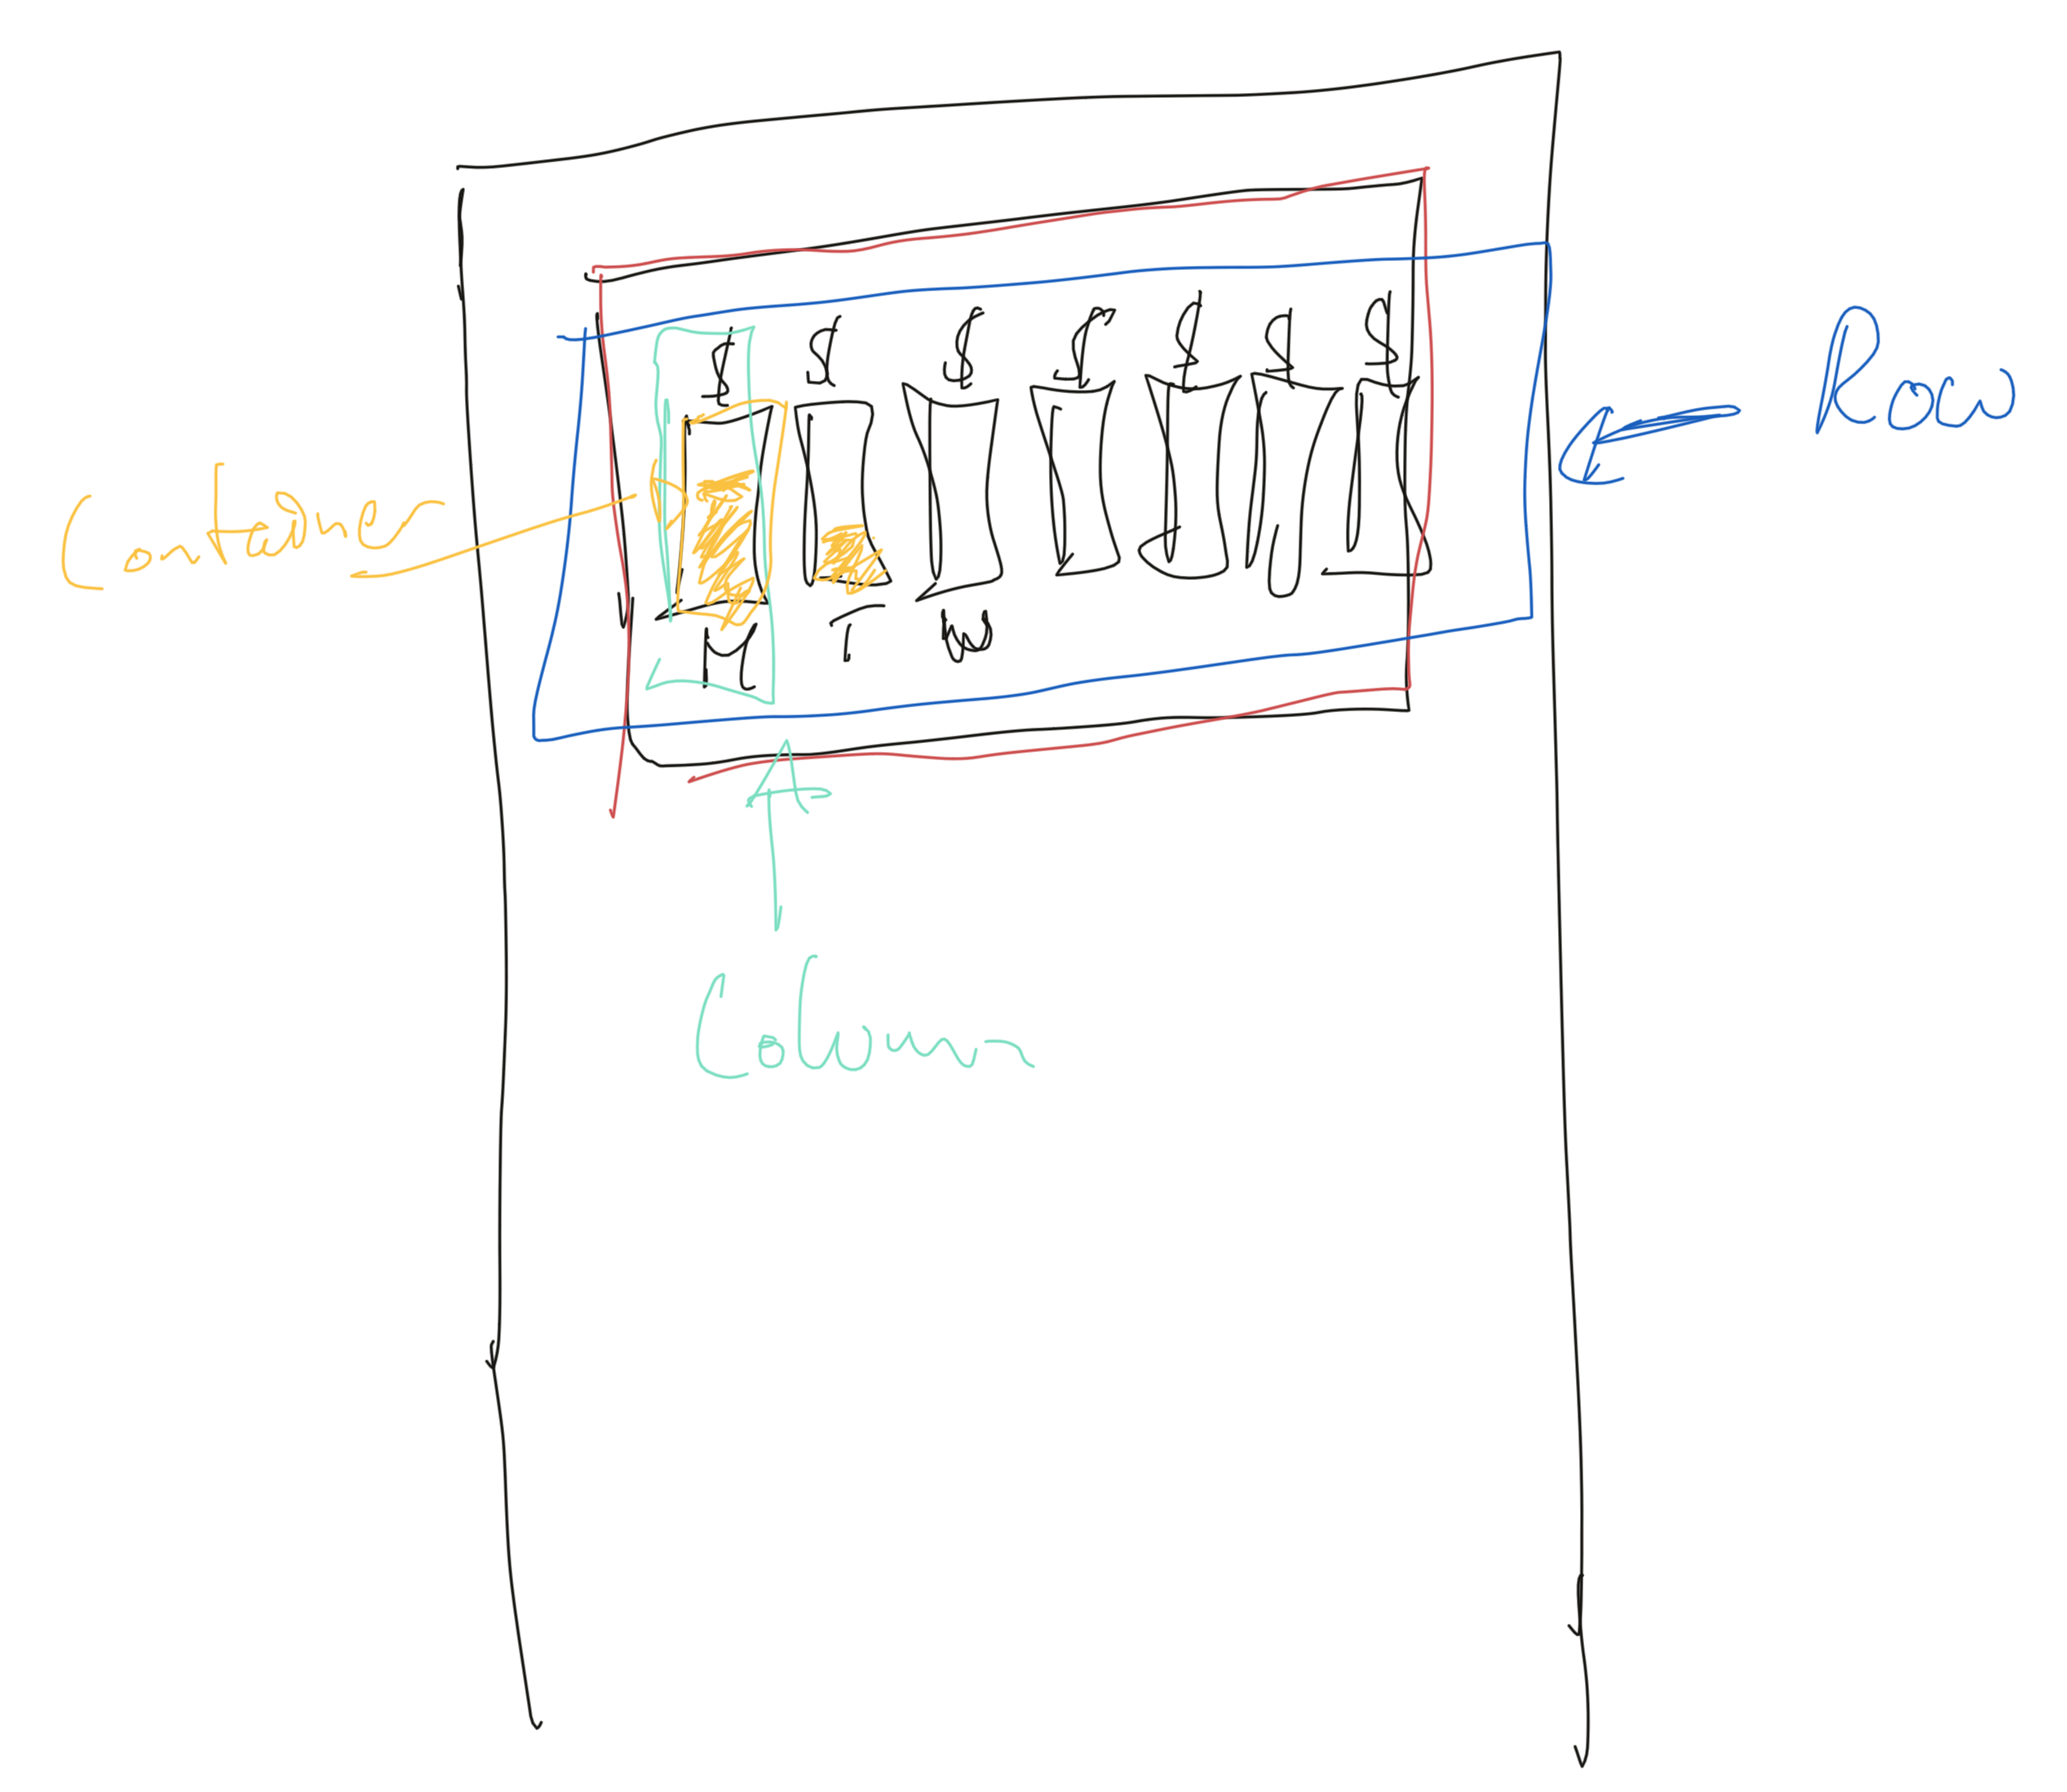 $ $ $ $ $ $ $
Row
Container
M T W
Column